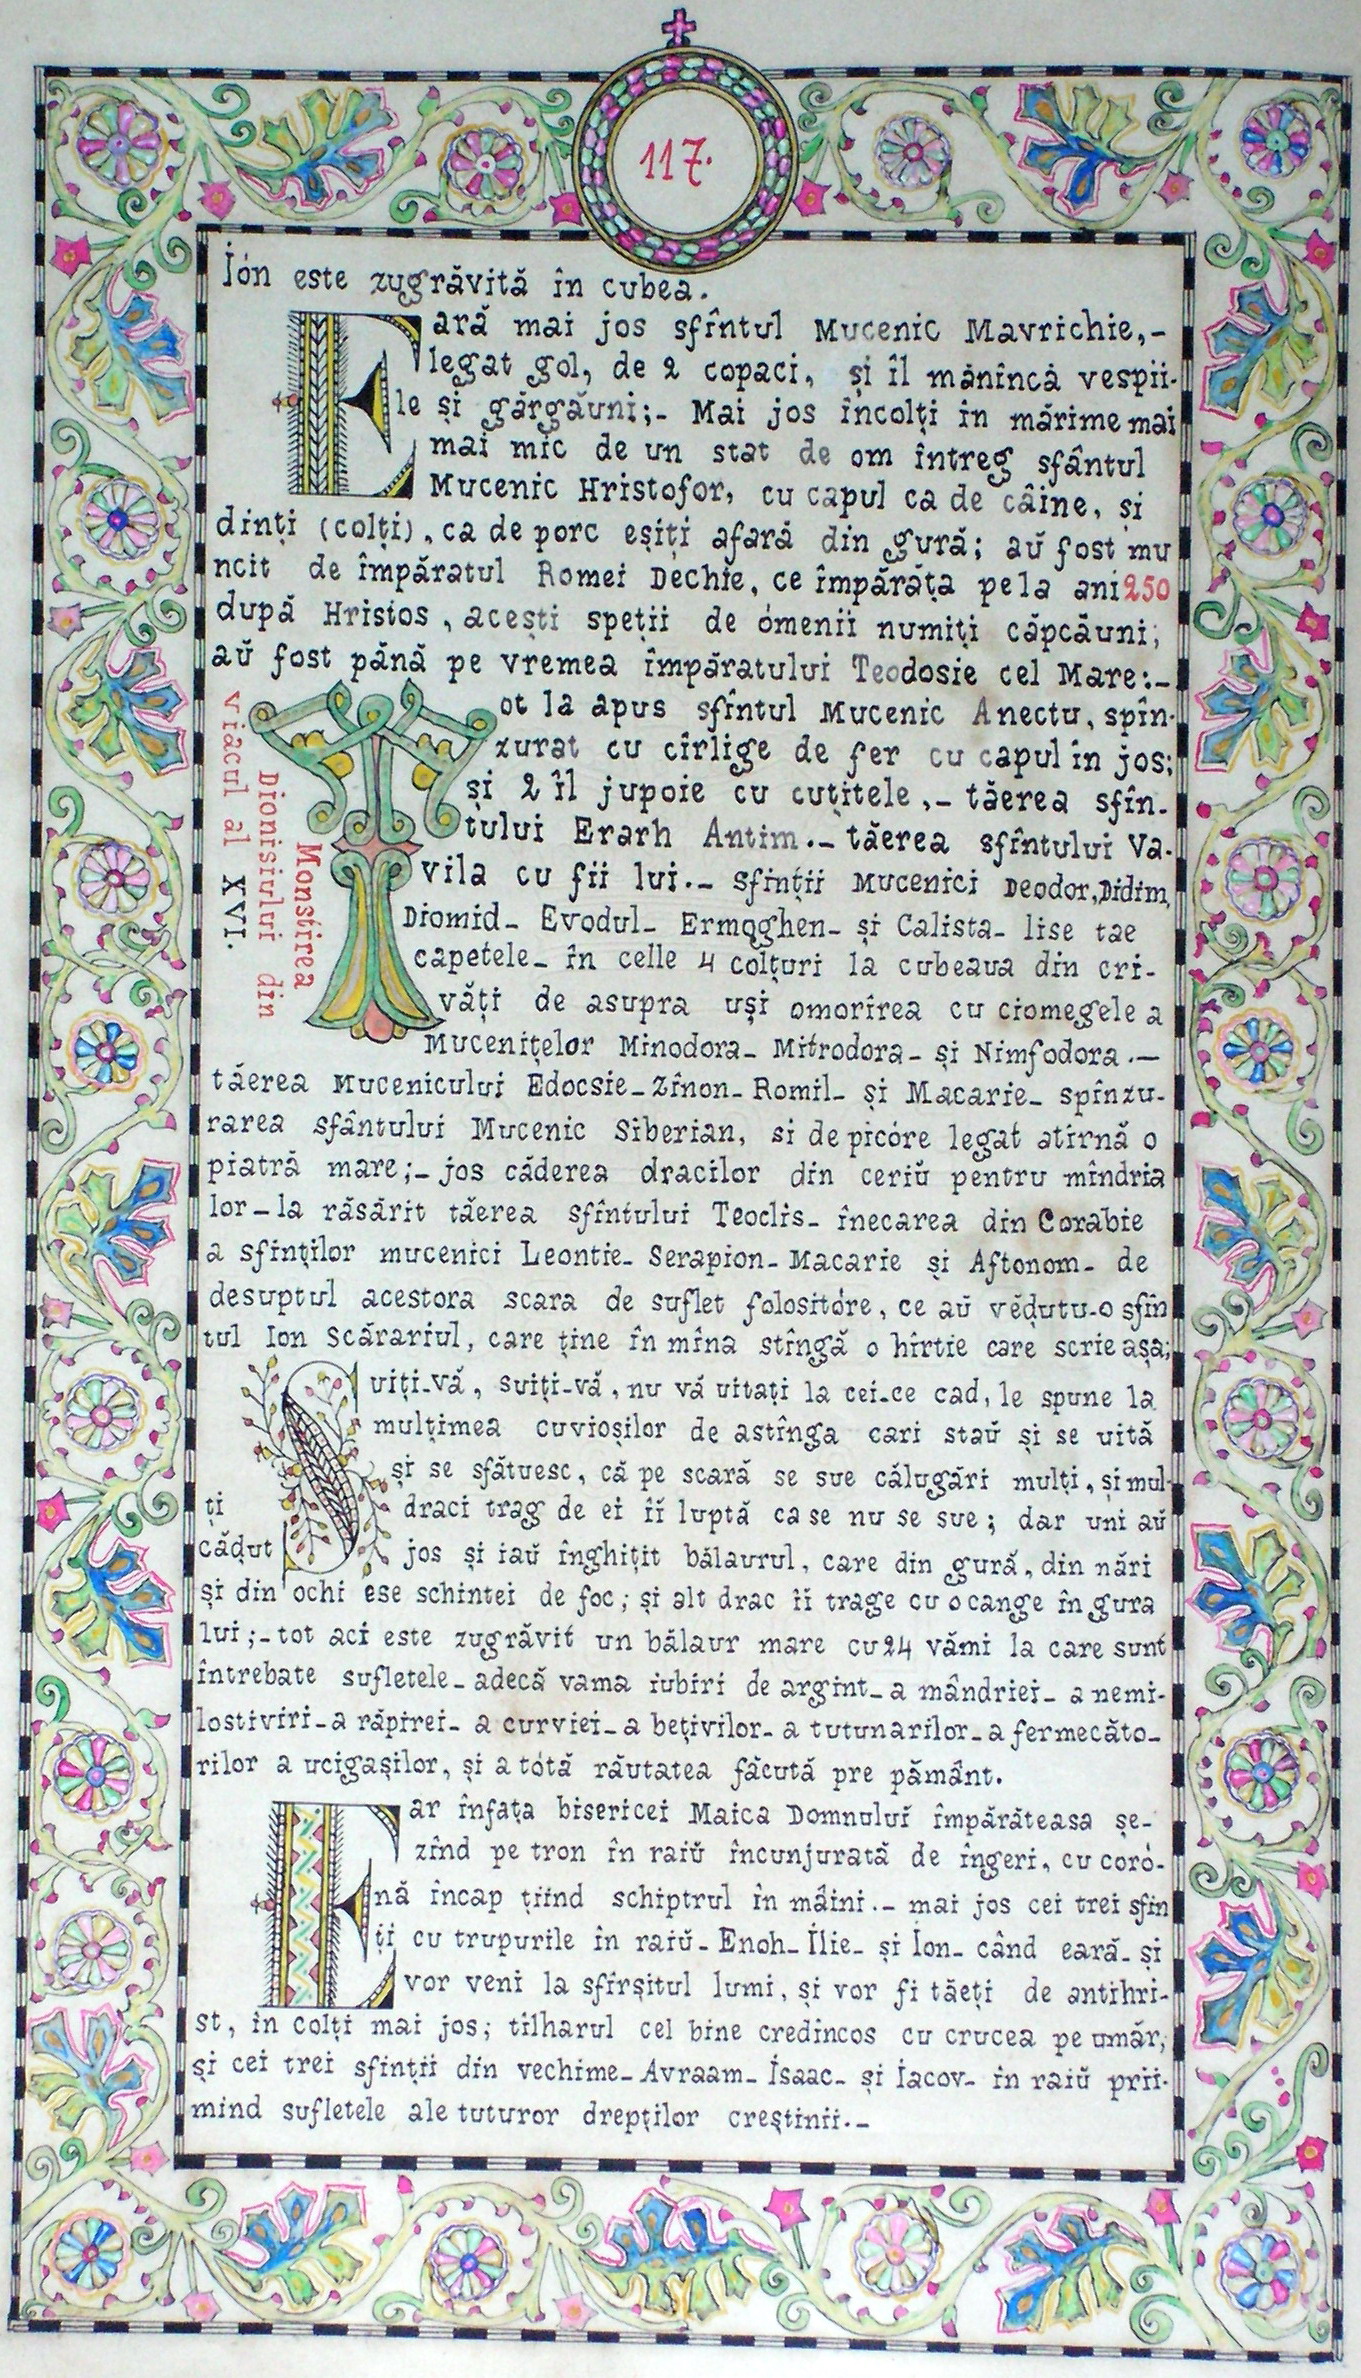 117.
Ión este zugrăvită în cubea.
Eară mai jos sfîntul Mucenic Mavrichie,-
legat gol, de 2 copaci, și îl mănîncă vespii-
le și gărgăuni;- Mai jos încolți in mărime mai
mai mic de un stat de om întreg sfântul
Mucenic Hristofor, cu capul ca de câine, și
dinți (colți), ca de porc eșiți afară din gură; aŭ fost mu
ncit de împăratul Romei Dechie, ce împărăța pe la ani 250
după Hristos, acești speții de ómenii numiți căpcăuni;
aŭ fost până pe vremea împăratului Teodosie cel Mare:-
Tot la apus sfîntul Mucenic Anectu, spîn-
zurat cu cîrlige de fer cu capul în jos;
și 2 îl jupoie cu cuțitele,- tăerea sfîn-
tului Erarh Antim.- tăerea sfîntului Va-
vila cu fii lui.- sfinții Mucenici Deodor, Didim,
Diomid- Evodul- Ermoghen- și Calista- lise tae
capetele- în celle 4 colțuri la cubeaua din cri-
văți de asupra uși omorîrea cu ciomegele a
Mucenițelor Minodora- Mitrodora- și Nimfodora.-
Monstirea
Dionisiului din
viacul al XVI.
tăerea Mucenicului Edocsie- Zînon- Romil- și Macarie- spînzu-
rarea sfântului Mucenic Siberian, si de picóre legat atirnă o
piatră mare;- jos căderea dracilor din ceriŭ pentru mîndria
lor- la răsărit tăerea sfîntului Teoclis- înecarea din Corabie
a sfinților mucenici Leontie- Serapion- Macarie și Aftonom- de
desuptul acestora scara de suflet folositóre, ce aŭ vĕdutu-o sfîn
tul Ion Scărariul, care ține în mîna stîngă o hîrtie care scrie așa;
Suiți-vă, suiți-vă, nu vă uitați la cei-ce cad, le spune la
mulțimea cuvioșilor de astînga cari staŭ și se uită
și se sfătuesc, că pe scară se sue călugări mulți, și mul-
ți draci trag de ei îĭ luptă ca se nu se sue; dar uni aŭ
căḑut jos și iaŭ înghițit bălaurul, care din gură, din nări
și din ochi ese schintei de foc; și alt drac îi trage cu o cange în gura
lui;- tot aci este zugrăvit un bălaur mare cu 24 vămi la care sunt
întrebate sufletele- adecă vama iubiri de argint- a mândriei- a nemi-
lostiviri- a răpirei- a curviei- a bețivilor- a tutunarilor- a fermecăto-
rilor a ucigașilor, și a tótă răutatea făcută pre pământ.
Ear înfața bisericei Maica Domnuluĭ împărăteasa șe-
zînd pe tron în raiŭ încunjurată de îngeri, cu coró-
nă încap țiind schiptrul în mâini.- mai jos cei trei sfin
ți cu trupurile în raiŭ- Enoh- Ilie- și Ion- când eară- și
vor veni la sfîrșitul lumi, și vor fi tăeți de antihri-
st, în colți mai jos; tîlharul cel bine credincos cu crucea pe umăr,
și cei trei sfinții din vechime- Avraam- Isaac- și Iacov- in raiŭ prii-
mind sufletele ale tuturor drepților creștinii.-